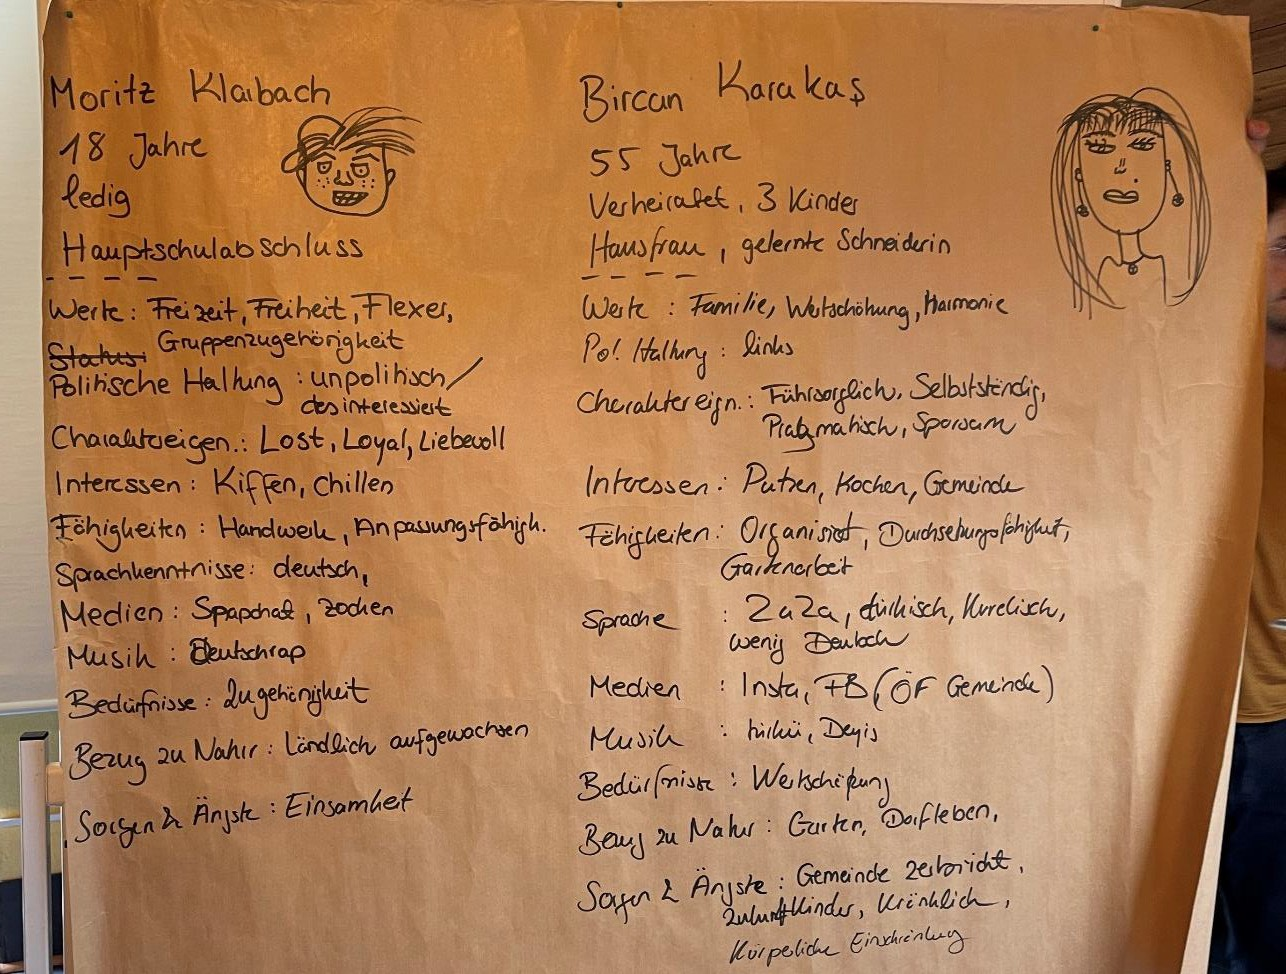 Moritz Klaibach
18 Jahre
ledig
Hauptschulabschluss
Werte : Freizeit, Freiheit, Flexer,
Gruppenzugehörigkeit
Status:
Politische Haltung : unpolitisch/
desinteressiert
Charaktereigen.: Lost, Loyal, Liebevoll
Interessen : Kiffen, chillen
Fähigkeiten : Handwerk, Anpassungsfähigk.
Sprachkenntnisse : deutsch,
Medien : Snapchat, zocken
Musik : Deutschrap
Bedürfnisse : Zugehörigkeit
Bezug zu Natur : Ländlich aufgewachsen
Sorgen & Ängste : Einsamkeit
Bircan Karakaş
55 Jahre
Verheiratet, 3 Kinder
Hausfrau, gelernte Schneiderin
Werte : Familie, Wertschätzung, Harmonie
Pol. Haltung : links
Charaktereign.: Führsorglich, Selbstständig,
Pragmatisch, Sparsam
Interessen : Putzen, Kochen, Gemeinde
Fähigkeiten : Durchsetzungsfähigkeit,
Gartenarbeit
Sprache : ZaZa, türkisch, Kurdisch,
wenig Deutsch
Medien : Insta, FB (ÖF Gemeinde)
Musik : türkü, Deyis
Bedürfnisse : Wertschätzung
Bezug zu Natur : Garten, Dorfleben,
Sorgen & Ängste : Gemeinde zerbricht,
Zukunft Kinder, Kränklich,
Körperliche Einschränkung